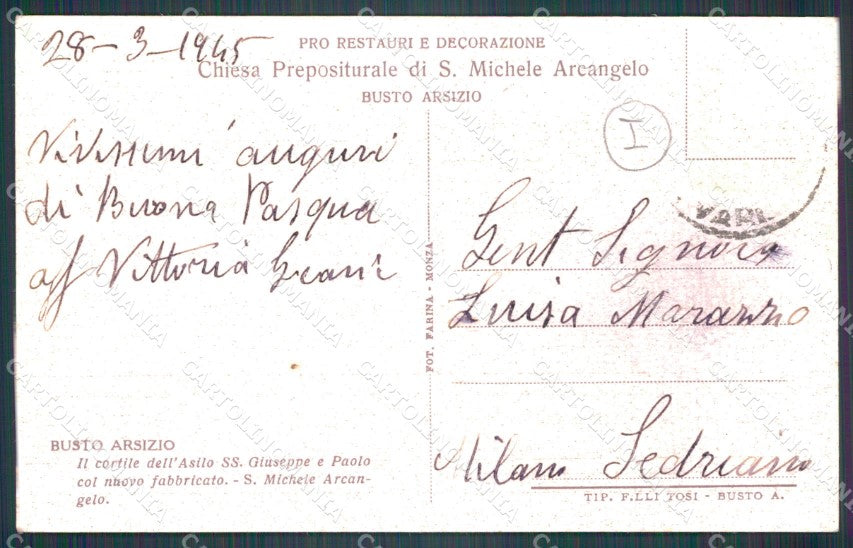 28-3-1945
PRO RESTAURI E DECORAZIONE
Chiesa Prepositurale di S. Michele Arcangelo
BUSTO ARSIZIO
I
Vivissimi auguri
di Buona Pasqua
aff Vittoria
Gent Signora
Luisa Marazzo
Milano Sedriano
FOT. FARINA - MONZA
BUSTO ARSIZIO
Il cortile dell'Asilo SS. Giuseppe e Paolo
col nuovo fabbricato. - S. Michele Arcan-
gelo.
TIP. F.LLI TOSI - BUSTO A.
CARTOLINOMANIA